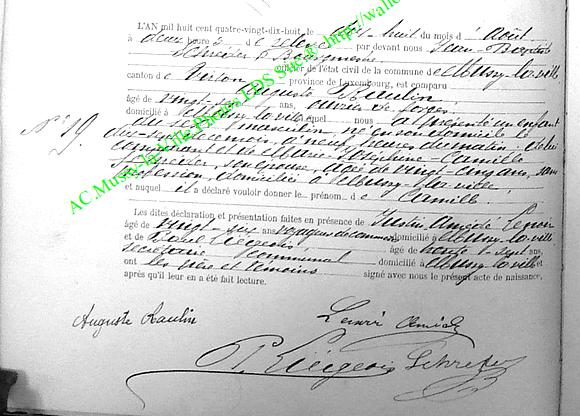 L'AN mil huit cent quatre-vingt-dix-huit, le dix-huit du mois d'août
à deux heures de relevée par devant nous Jean-Baptiste
Schreider, Bourgmestre
officier de l'état civil de la commune de Mussy-la-ville
canton de Virton, province de Luxembourg, est comparu
Auguste Raulin
âgé de vingt- ans, ouvrier de forges
domicilié à Mussy-la-ville, lequel nous a présenté un enfant
du sexe masculin, né en son domicile le
dix-sept de ce mois, à neuf heures du matin, de lui
comparant et de Marie-Joséphine-Camille
Schreider, son épouse, âgée de vingt-cinq ans, sans
profession, domiciliée à Mussy-la-ville,
et auquel il a déclaré vouloir donner le prénom de Camille
N° 19.
Les dites déclaration et présentation faites en présence de Justin Amédé Lenoir
âgé de vingt-six ans, voyageur de commerce domicilié à Mussy-la-ville
et de Liégeois âgé de trente-sept ans,
secrétaire communal domicilié à Mussy-la-ville
ont les père et témoins signé avec nous le présent acte de naissance,
après qu'il leur en a été fait lecture.
Auguste Raulin Lenoir Amédé
Liégeois Schreider
AC Mussy-la-Ville Photos LDS Salt © http://wallo